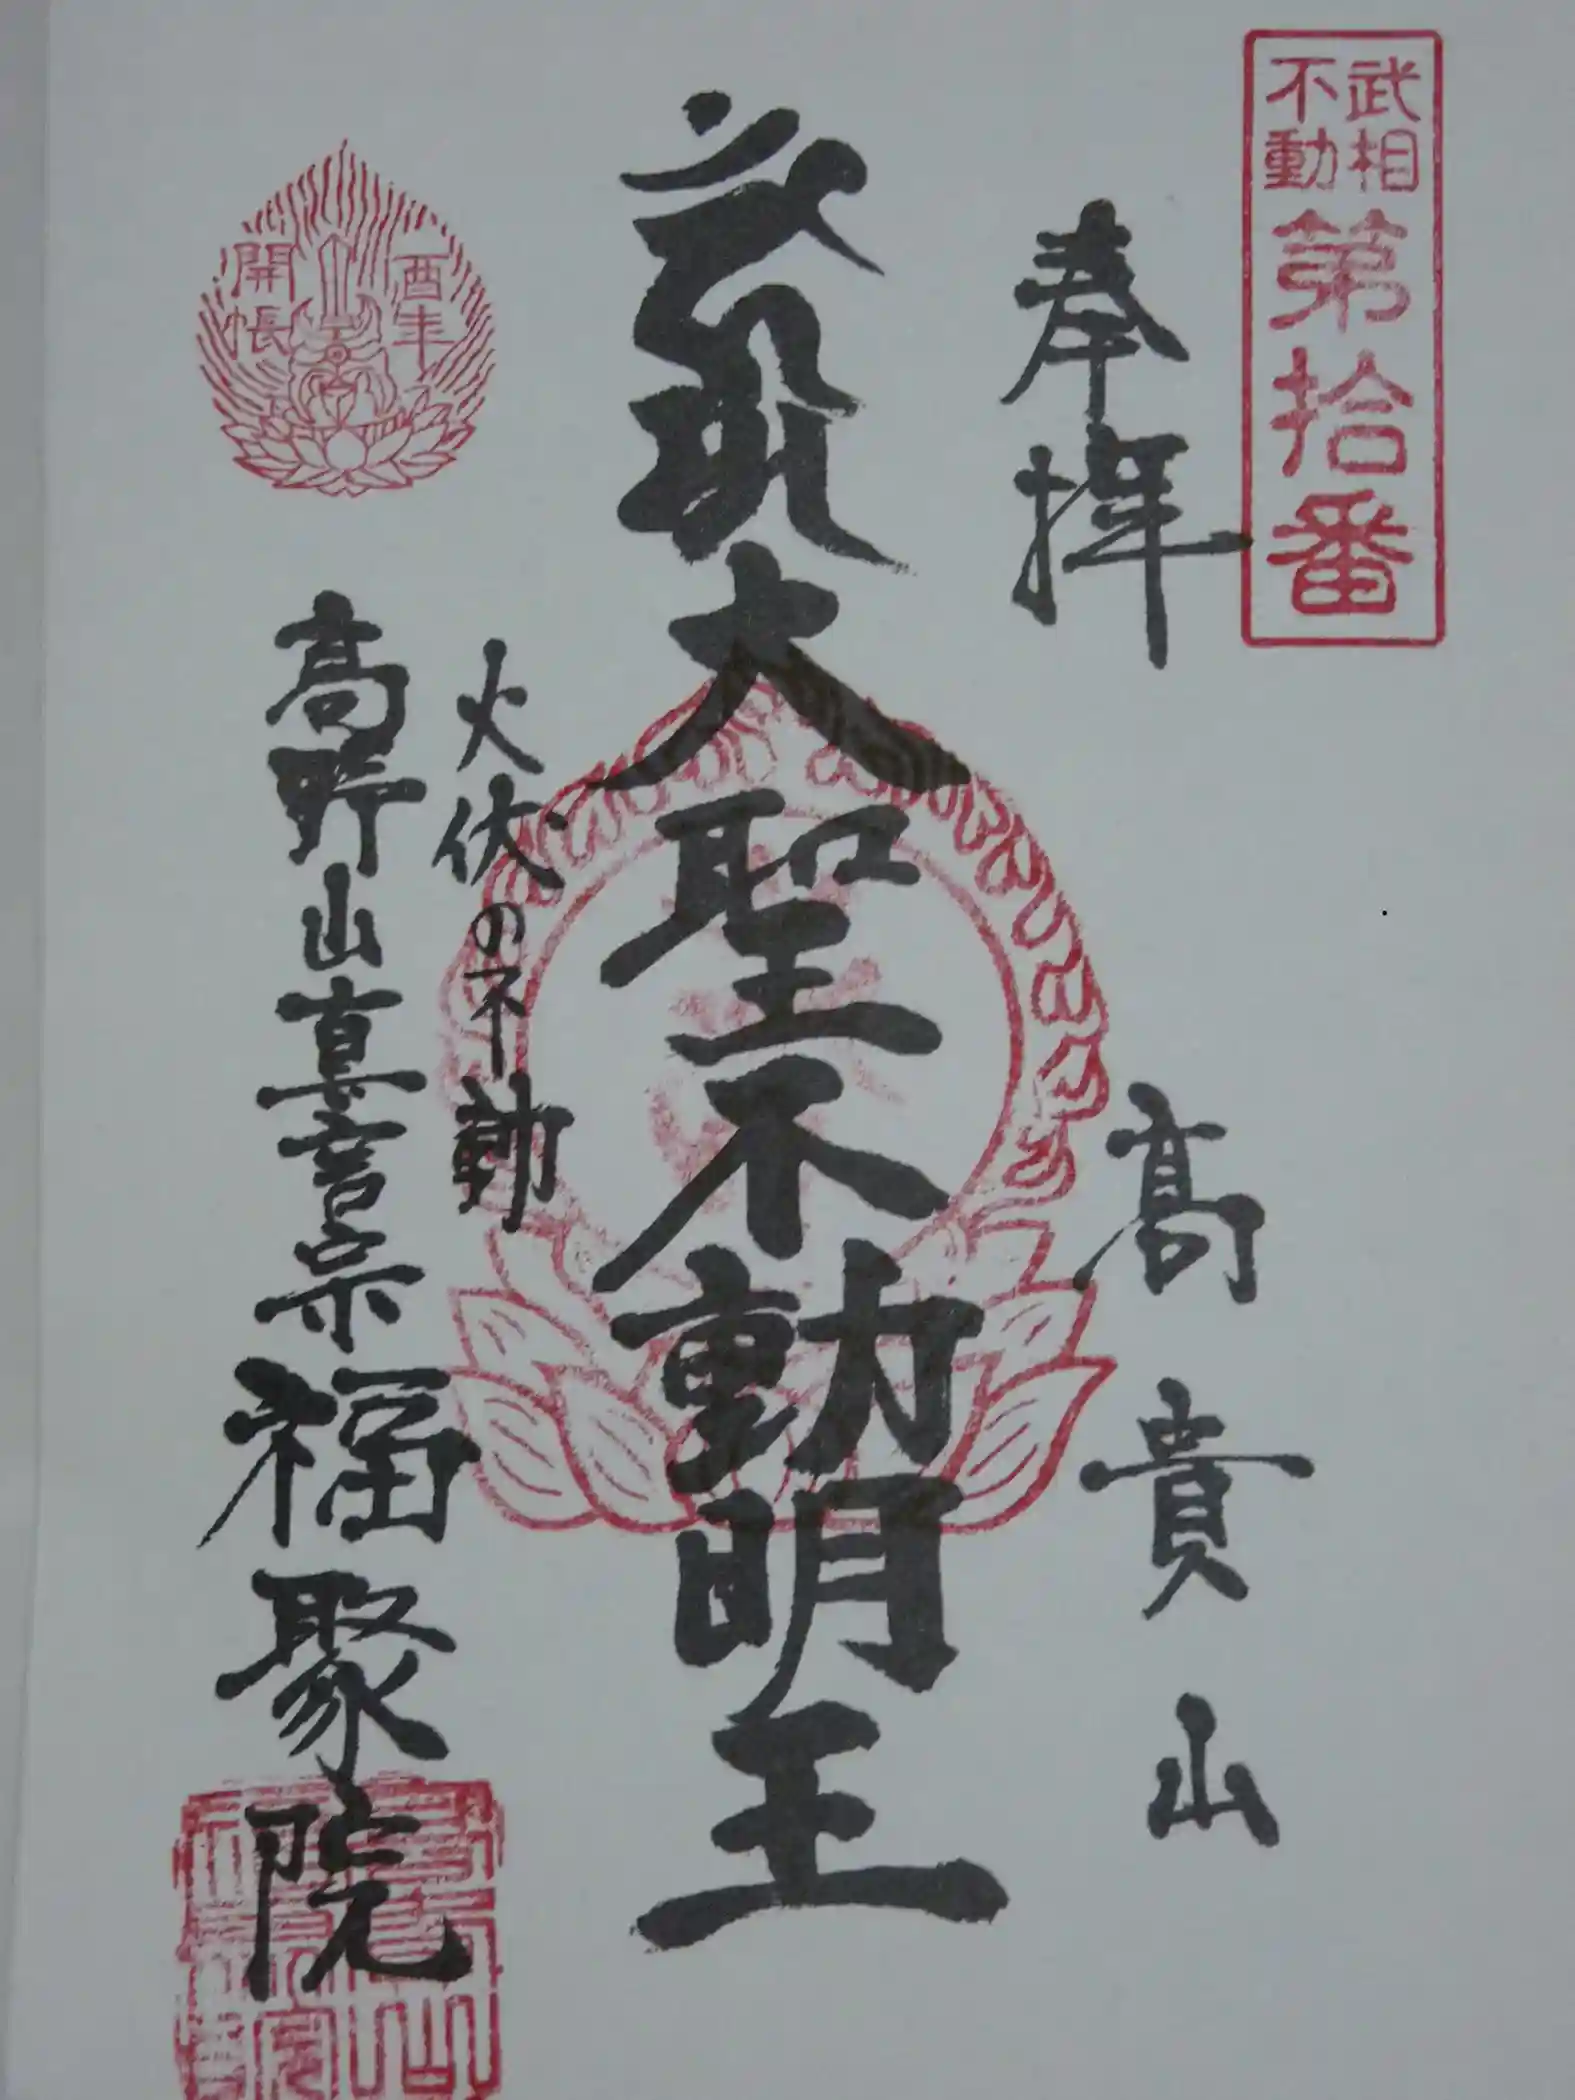 武相
不動
第拾番
奉拝
高貴山
大聖不動明王
火伏の不動
高野山真言宗福聚院
酉年
開帳